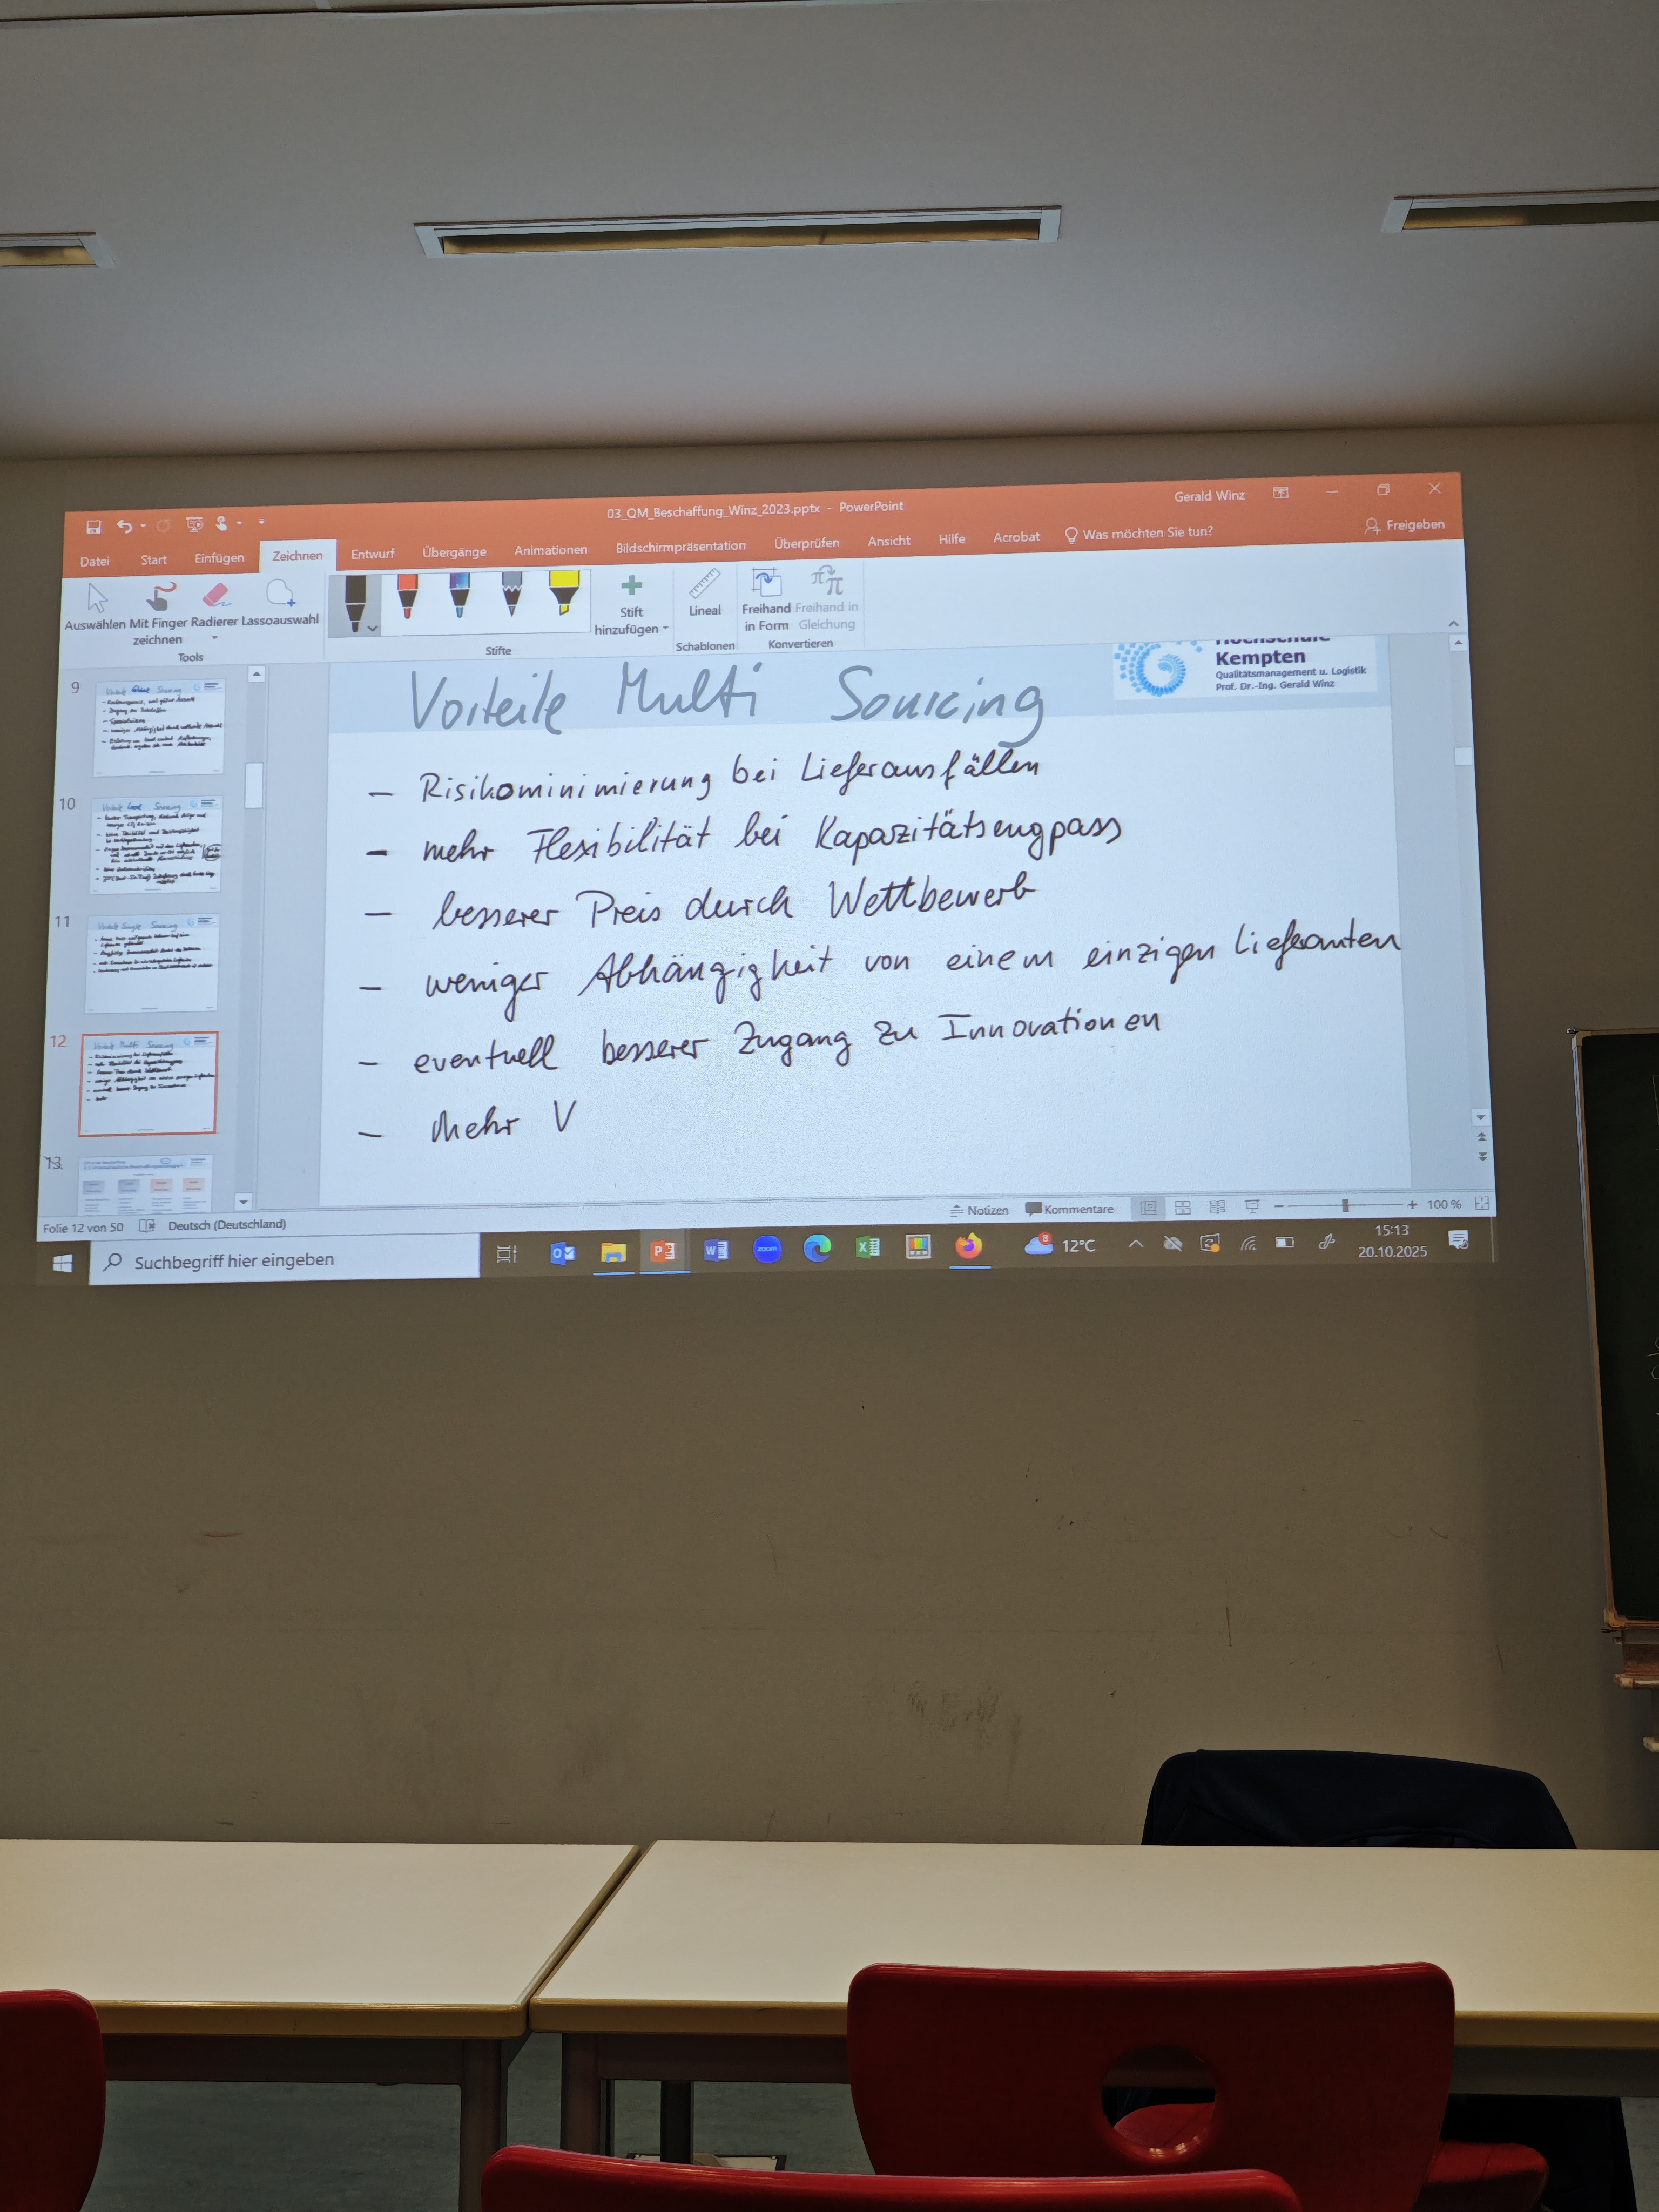 03_QM_Beschaffung_Winz_2023.pptx - PowerPoint
Gerald Winz
Datei Start Einfügen Zeichnen Entwurf Übergänge Animationen Bildschirmpräsentation Überprüfen Ansicht Hilfe Acrobat Was möchten Sie tun? Freigeben
Auswählen Mit Finger zeichnen Radierer Lassoauswahl
Stift hinzufügen
Lineal
Freihand in Form
Freihand in Gleichung
Tools
Stifte
Schablonen
Konvertieren
Hochschule
Kempten
Qualitätsmanagement u. Logistik
Prof. Dr.-Ing. Gerald Winz
Vorteile Multi Sourcing
- Risikominimierung bei Lieferausfällen
- mehr Flexibilität bei Kapazitätsengpass
- besserer Preis durch Wettbewerb
- weniger Abhängigkeit von einem einzigen Lieferanten
- eventuell besserer Zugang zu Innovationen
- Mehr V
9
Vorteile Global Sourcing
10
Vorteile Local Sourcing
11
Vorteile Single Sourcing
12
Vorteile Multi Sourcing
13
Folie 12 von 50 Deutsch (Deutschland)
Notizen Kommentare 100 %
Suchbegriff hier eingeben
zoom
12°C
15:13
20.10.2025